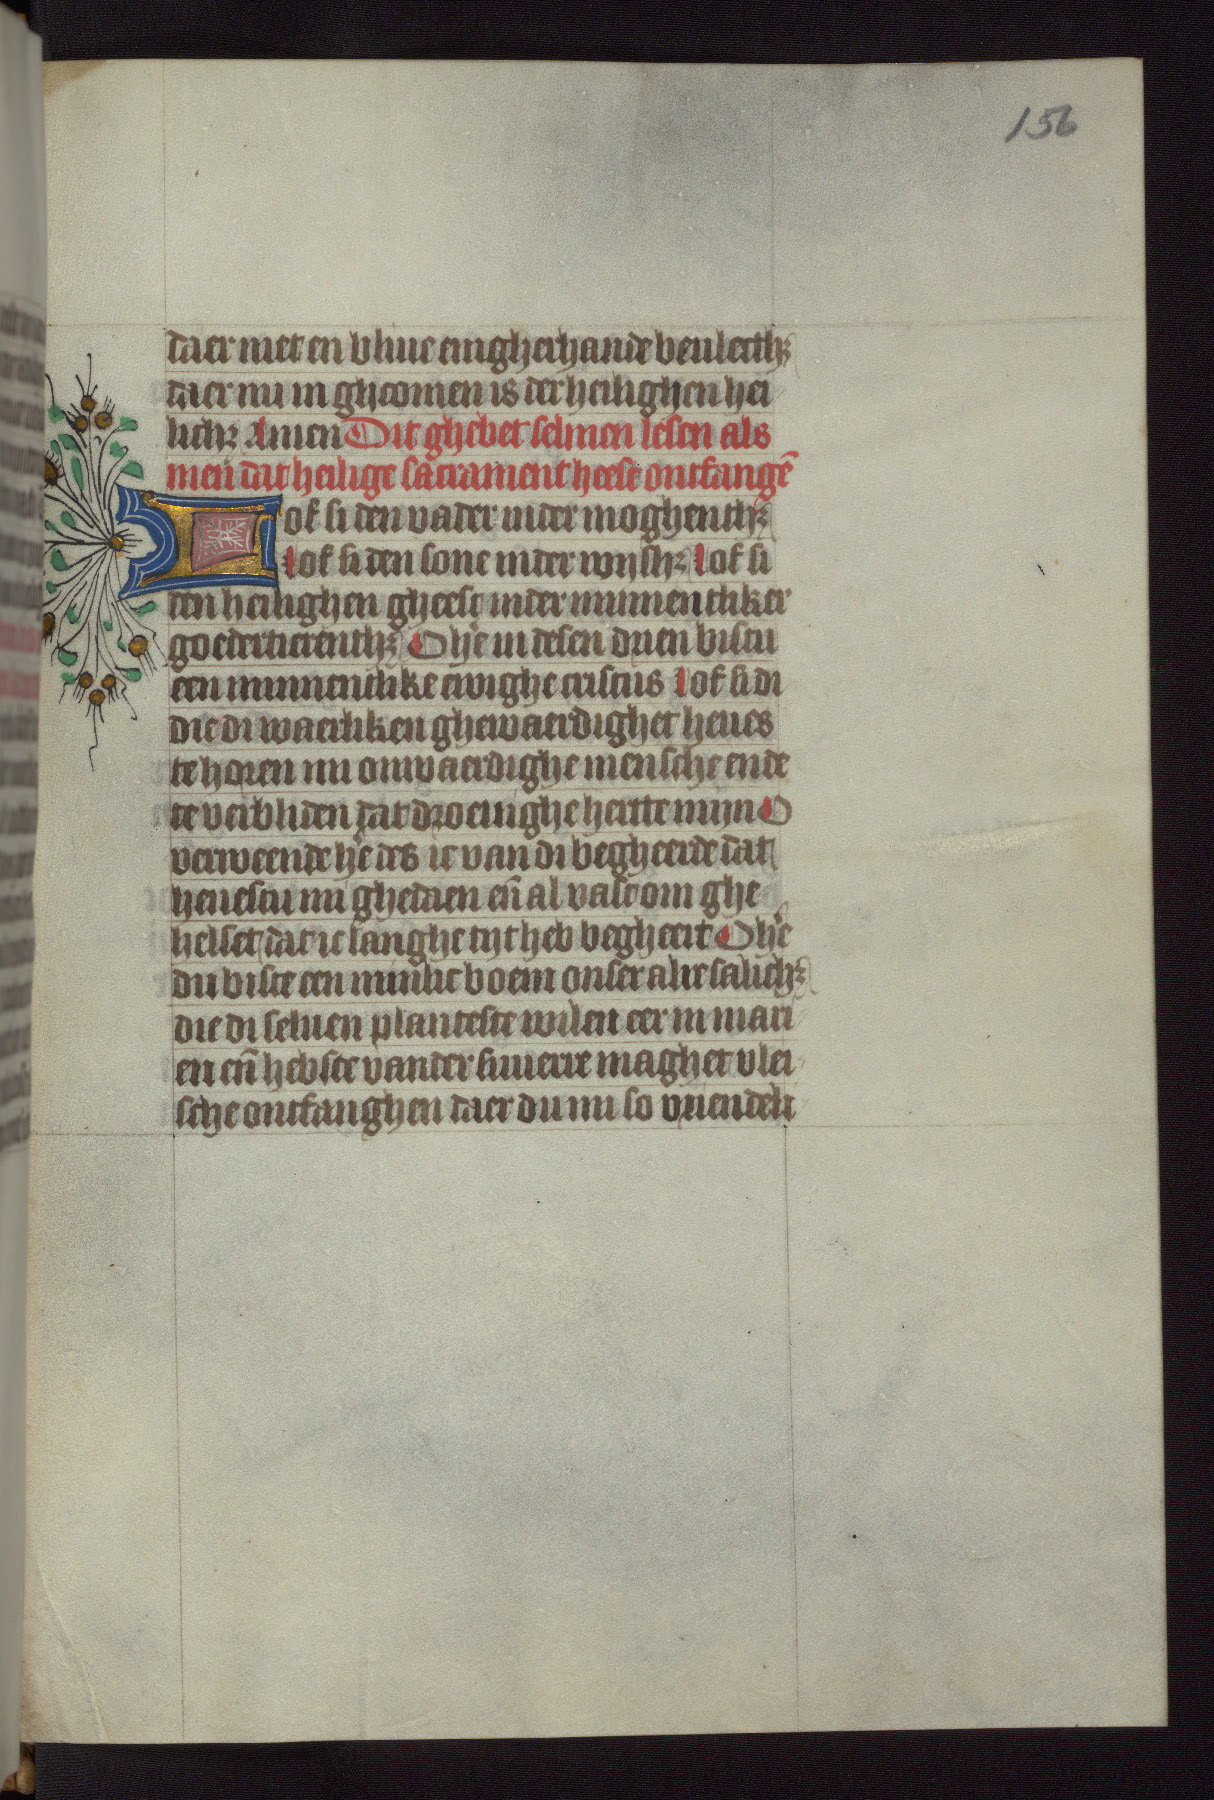 156
daer niet en bliue enigherhande bevlecthꝫ
daer nu in ghcomen is der heilighen hei
lichꝫ Amen Dit ghebet selmen lesen als
men dat heilige sacrament heeft ontfangē
Lof si den vader inder moghenthꝫ
lof si den sone inder wijshꝫ lof si
den heilighen gheest inder minnentliker
goedertierenthꝫ O he in desen drien bistu
een minnentlike ewighe cristus lof si di
die di waerliken ghewaerdighet heues
te horen mi onwaerdighe mensche ende
te verbliden dat droeuighe hertte mijn O
verweende he des ic van di begheerde dat
heuestu mi ghedaen en̄ al vast om ghe
helset dat ic langhe tyt heb begheert O he
du biste een minlic boem onser alre salichꝫ
die di seluen planteste wilen eer in mari
en en̄ hebste vander siuerre maghet vlei
sche ontfanghen daer du mi so vriendeli